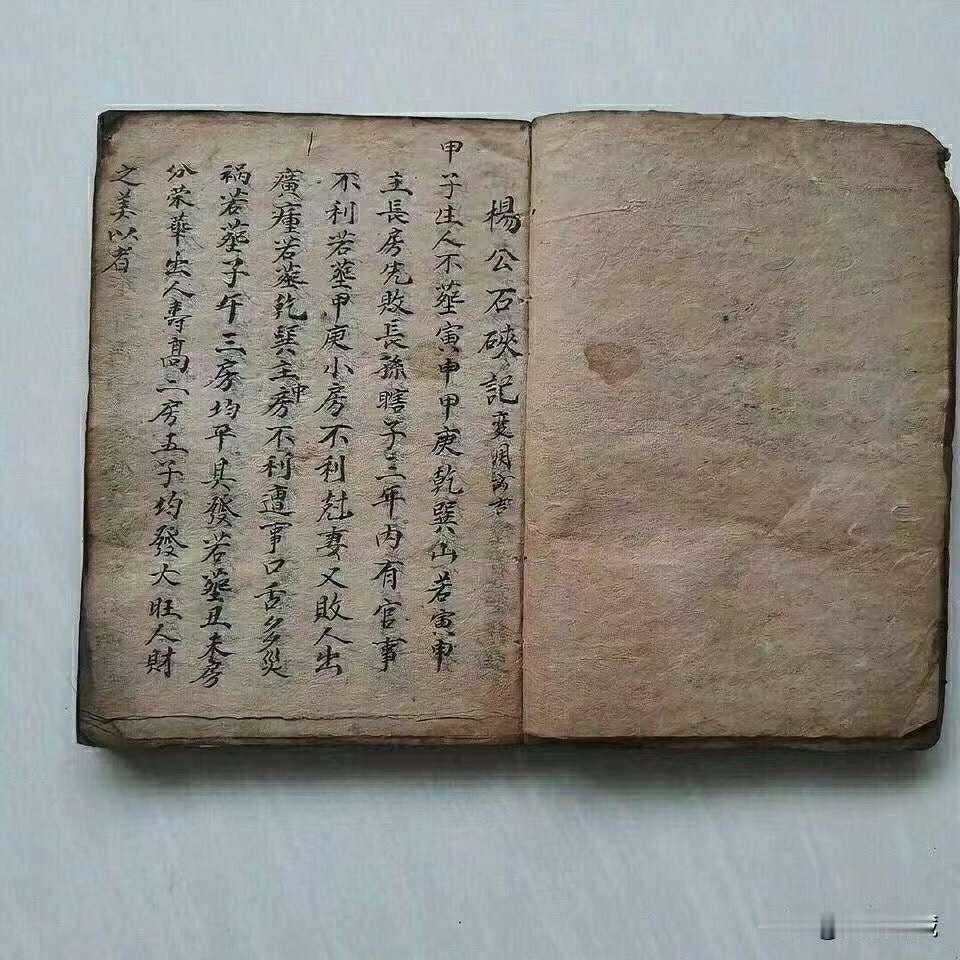 楊公石硤記
甲子生人不塟寅申甲庚乾巽山若寅申
主長房先敗長孫瞎子三年内有官事
不利若塟甲庚小房不利尅妻又敗人出
癀瘇若塟乾巽主中房不利遭事口舌多災
禍若塟子午三房均平具發若塟丑未房
分荣華出人壽高二房五子均發大旺人財
之美以者